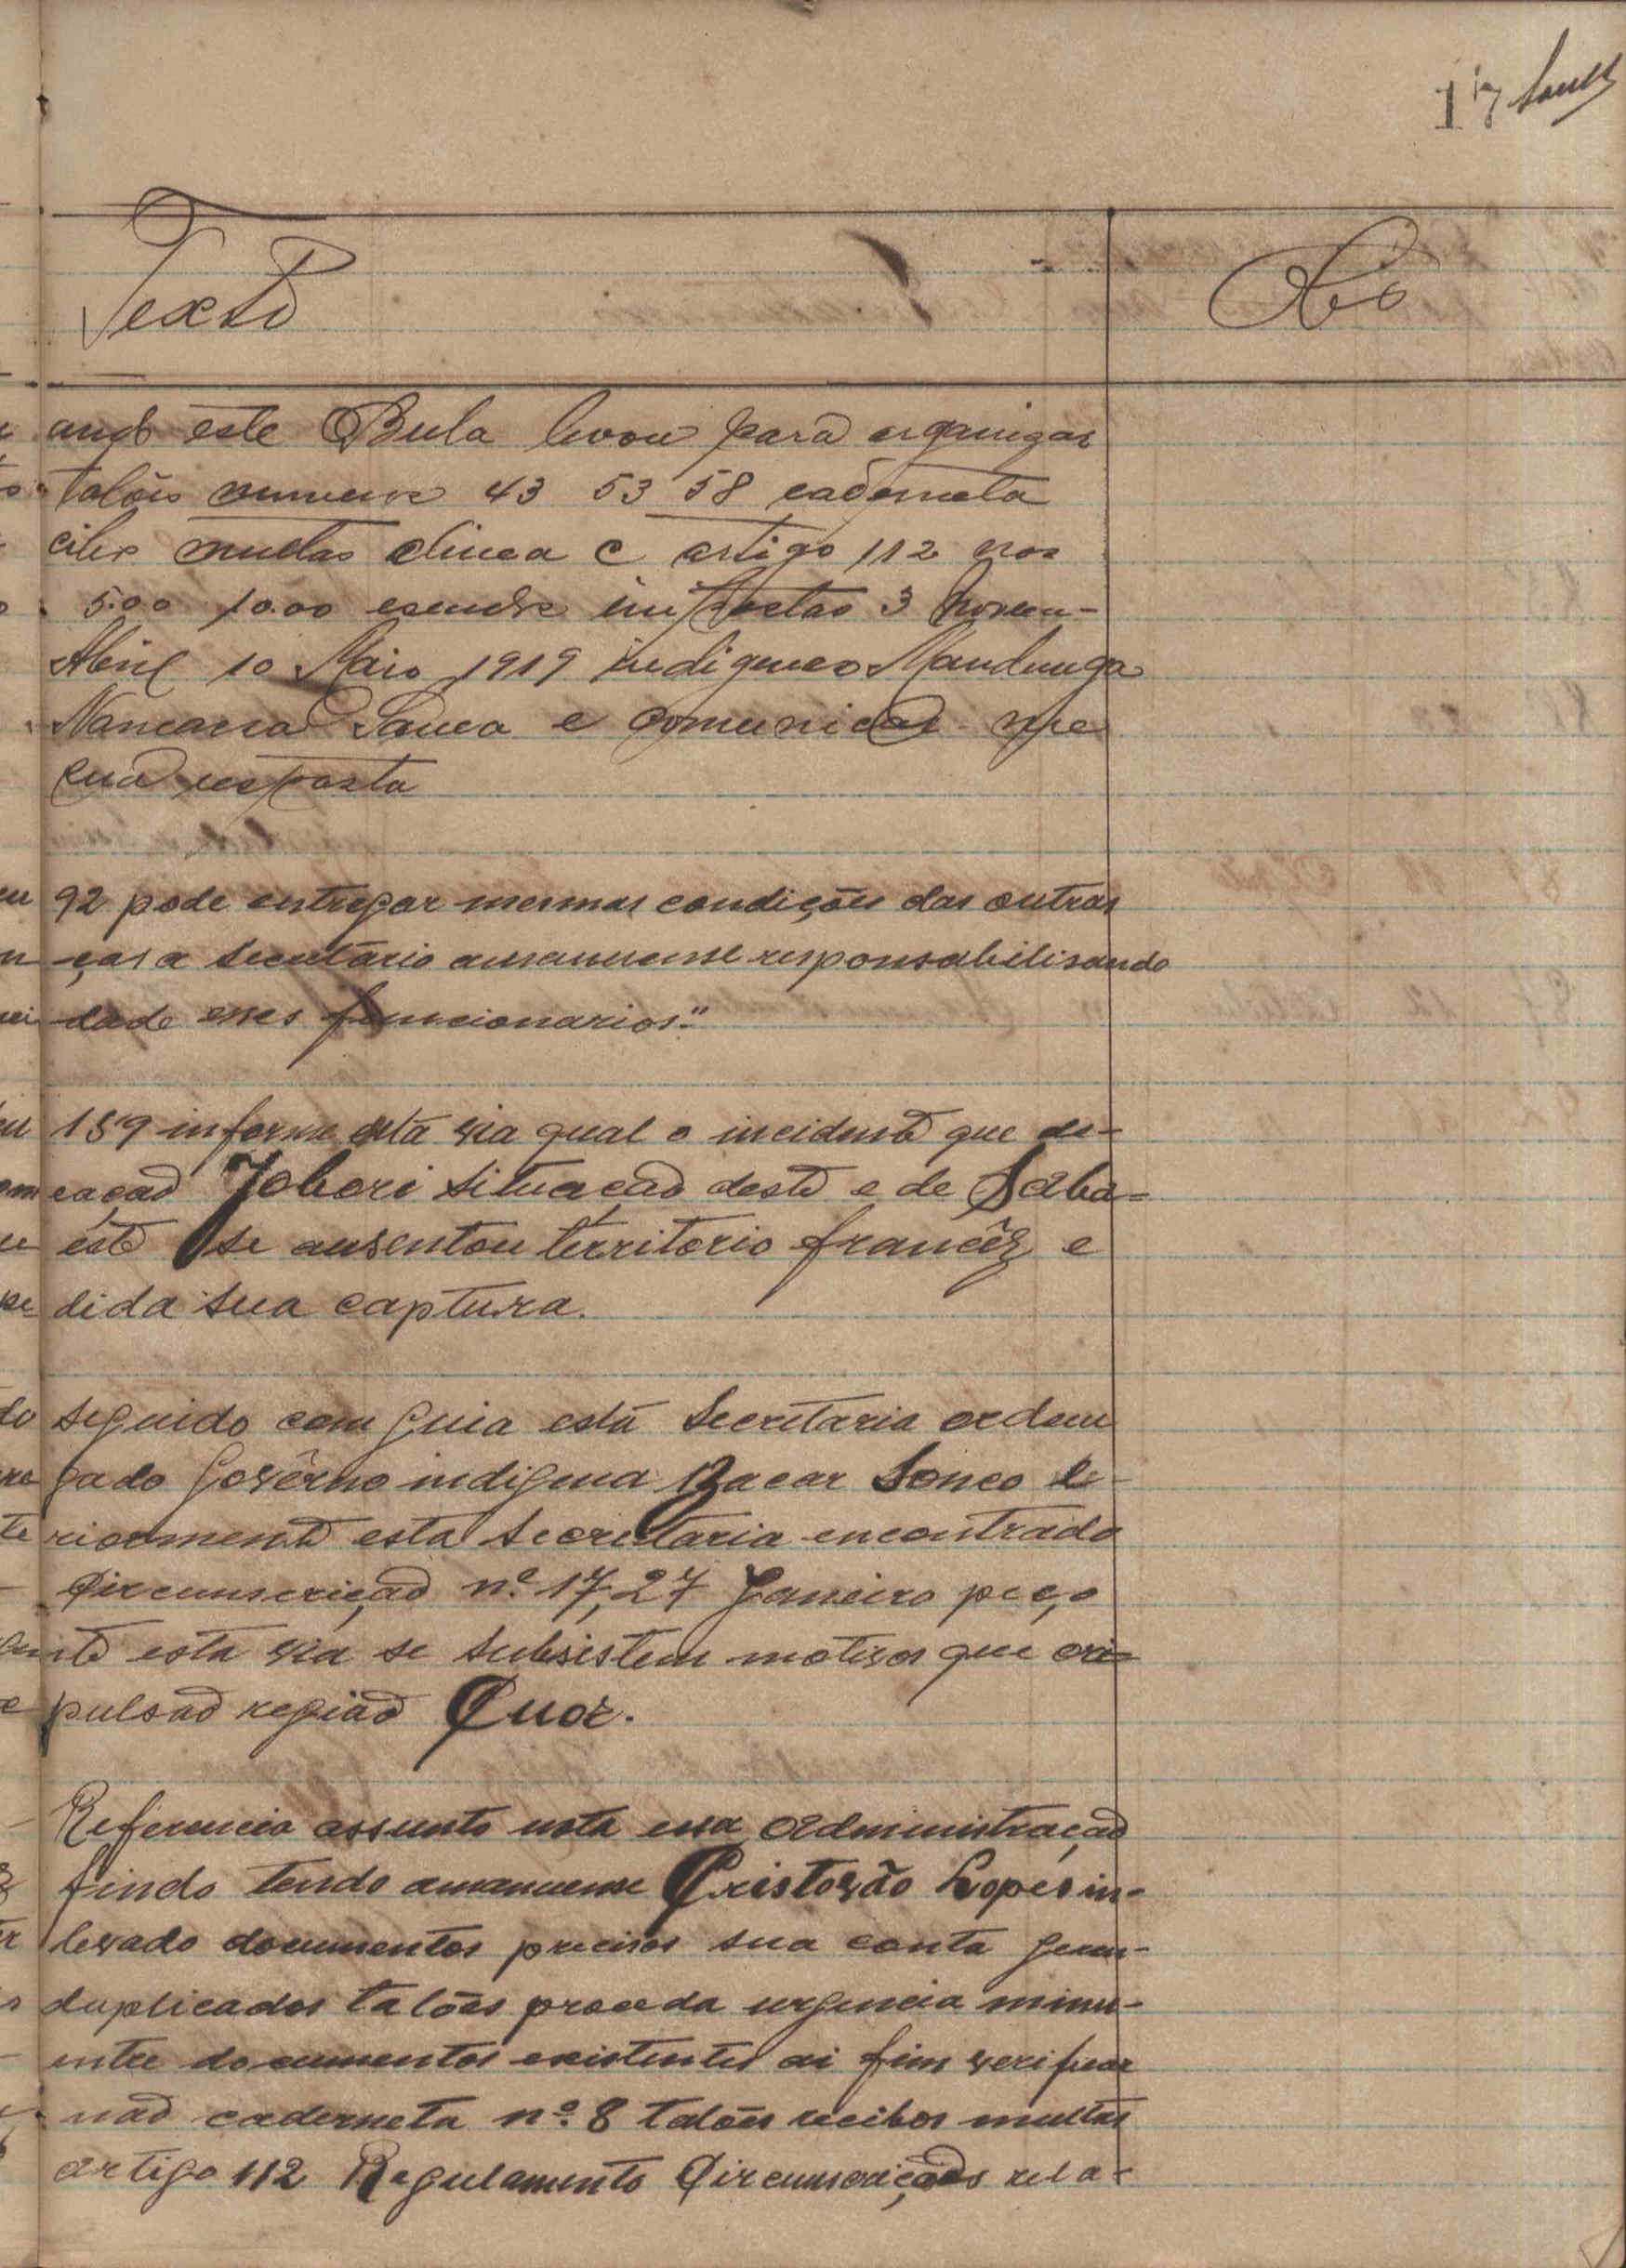 17
Texto
este Bula levou para organizar
talões numeros 43 53 58 caderneta
multas alinea c artigo 112 nos
5.00 10.00 escudos impostas 3 novem-
Abril 10 Maio 1919 indigenas Mandunga
Sanca e comunicar-me
sua resposta
92 pode entregar mesmas condições das outras
ças a secretário amanuense responsabilisando
dade esses funcionarios."
159 informe esta via qual o incidente que de-
cação Jobori situação deste e de Saba-
este se ausentou territorio francês e
dida sua captura.
seguido com guia esta Secretaria ordem
gado Govêrno indigena Bacar Sonco le-
riormente esta Secretaria encontrado
Circunscrição nº 17, 27 Janeiro peço
esta via se subsistem motivos que ori-
pulsão região Cuor.
Referencia assunto nota essa Administração
findo tendo amanuense Cristovão Lopes in-
levado documentos precisos sua conta geren-
duplicados talões proceda urgencia minu-
entre documentos existentes ai fim verificar
não caderneta nº 8 talões recibos multas
artigo 112 Regulamento Circunscrições rela-